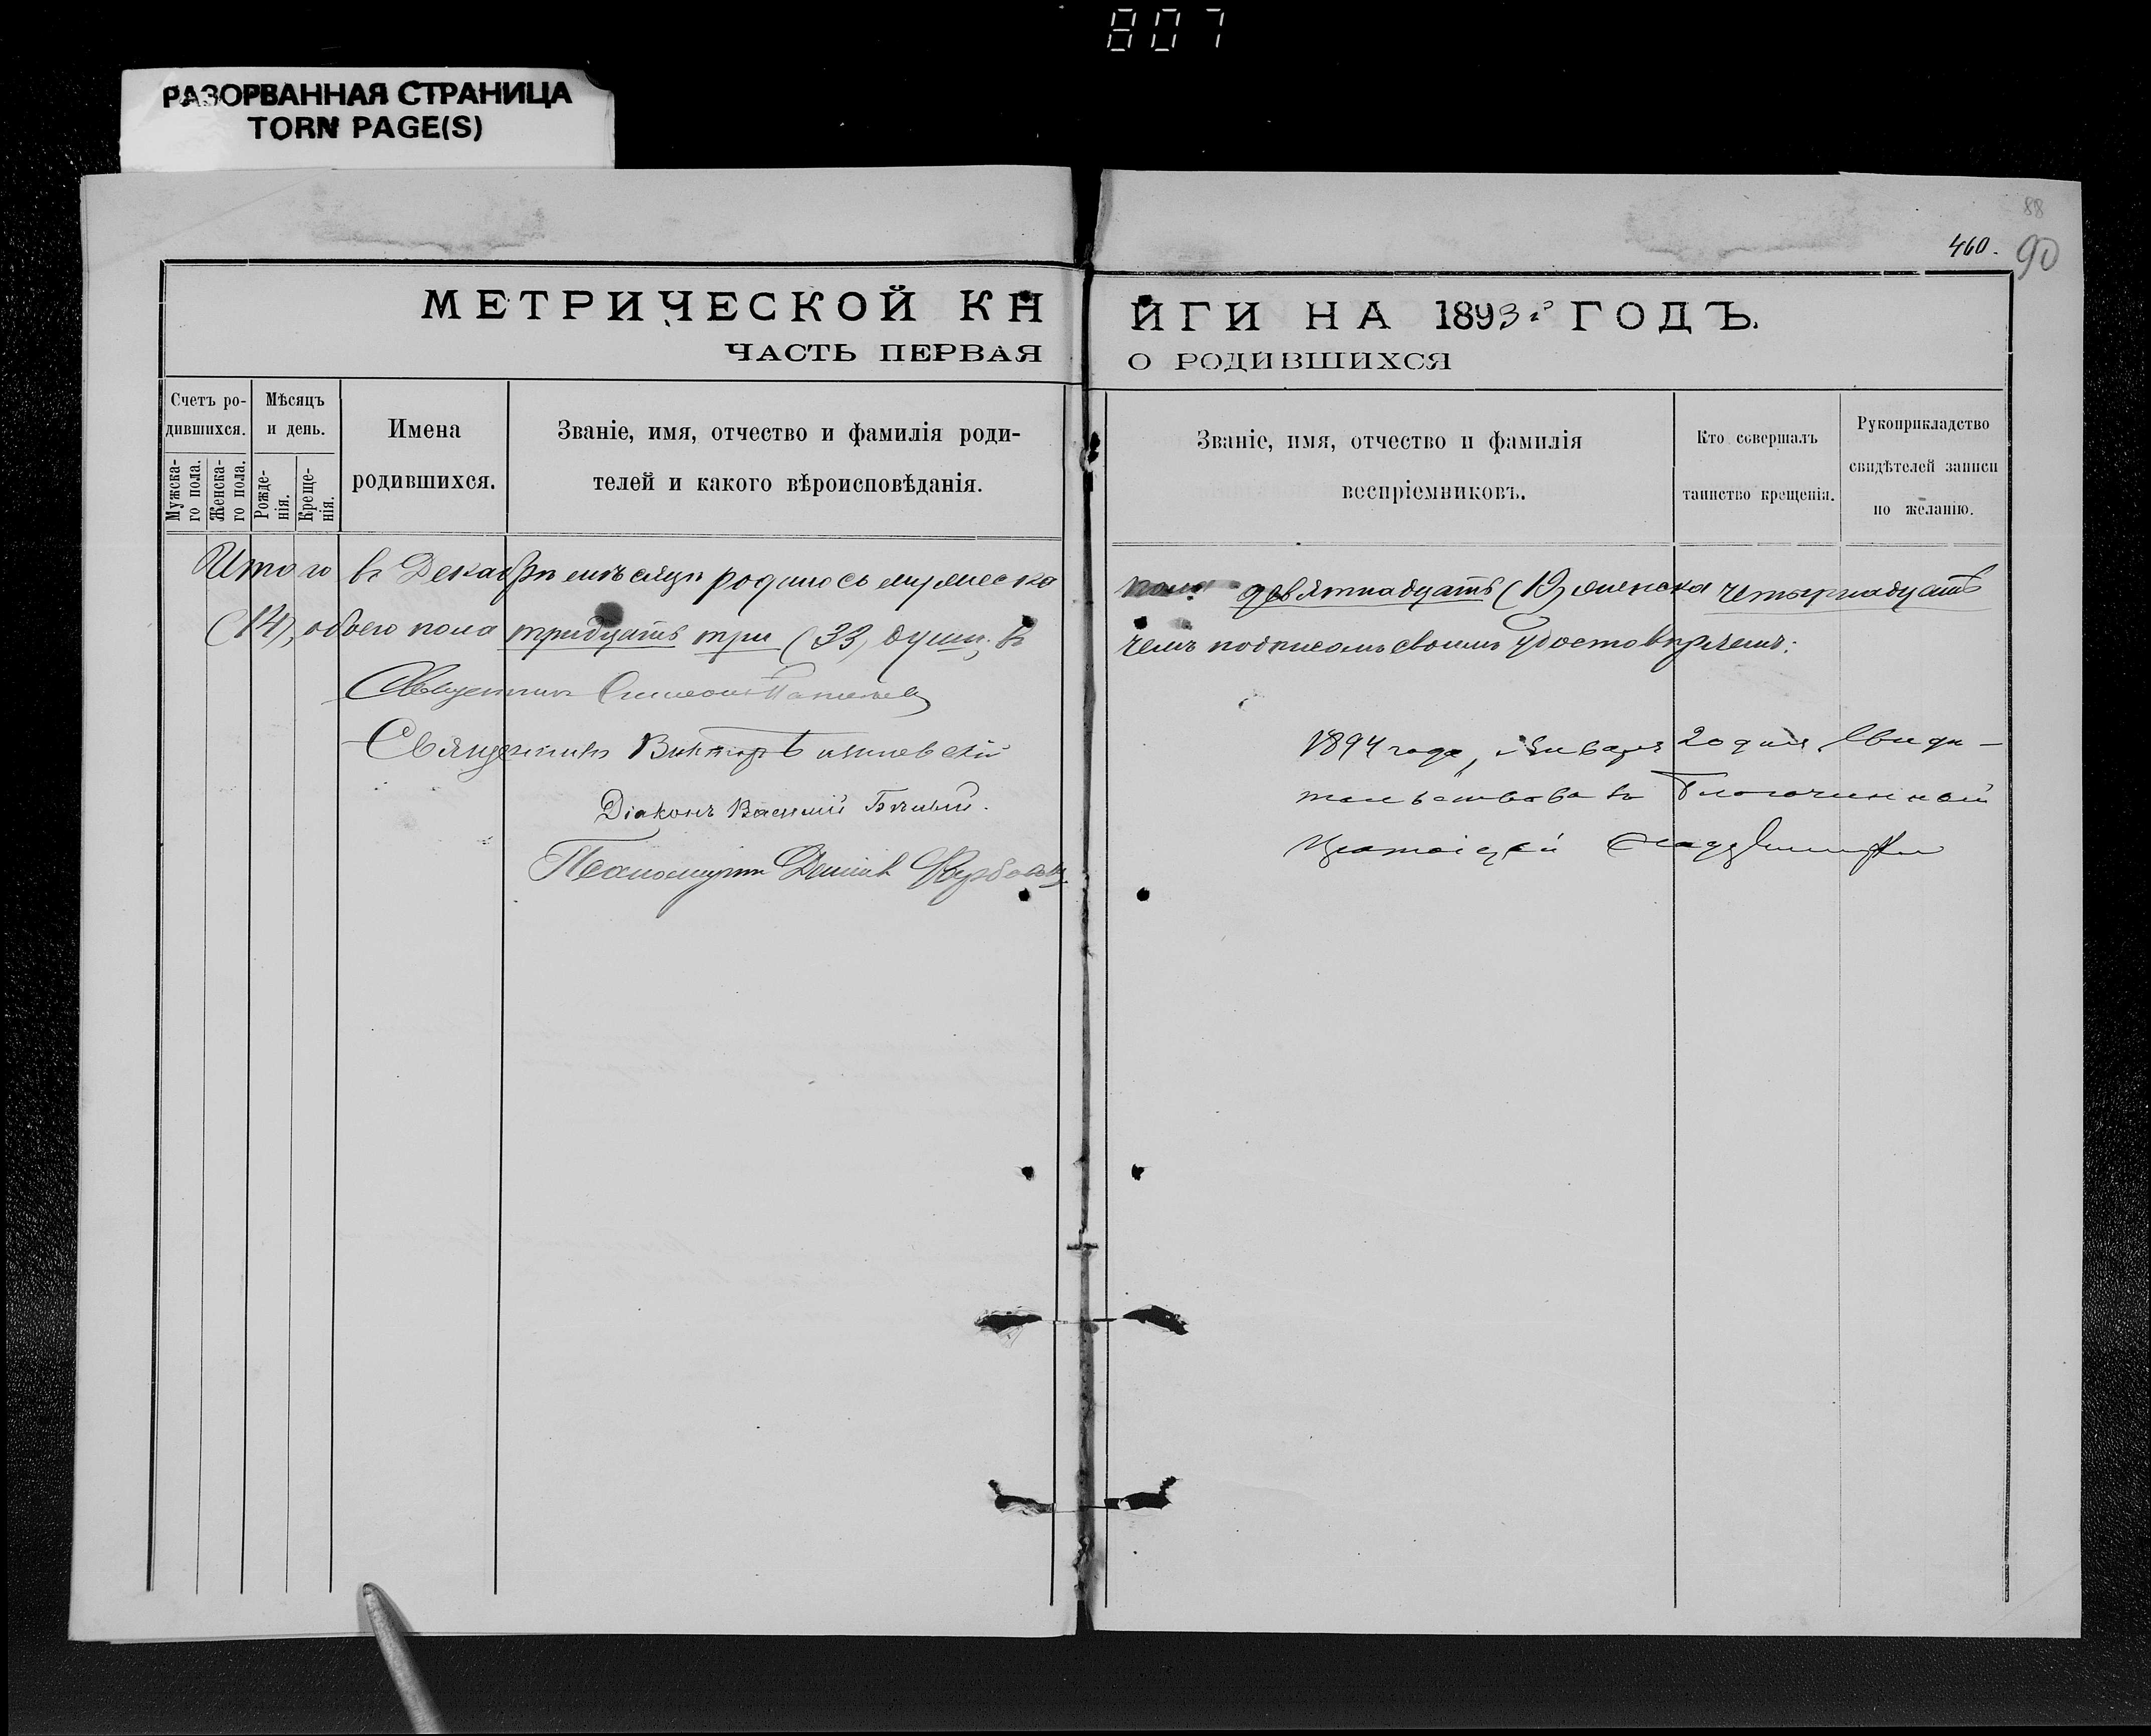 807
РАЗОРВАННАЯ СТРАНИЦА
TORN PAGE(S)
88
460.
90
МЕТРИЧЕСКОЙ КНИГИ НА 1893й ГОДЪ.
ЧАСТЬ ПЕРВАЯ О РОДИВШИХСЯ
Счетъ ро-
дившихся.
Мужска-
го пола.
Женска-
го пола.
Мѣсяцъ
и день.
Рожде-
нія.
Креще-
нія.
Имена
родившихся.
Званіе, имя, отчество и фамилія роди-
телей и какого вѣроисповѣданія.
Званіе, имя, отчество и фамилія
воспріемниковъ.
Кто совершалъ
таинство крещенія.
Рукоприкладство
свидѣтелей записи
по желанію.
Итого въ Декабрѣ мѣсяцѣ родилось мужеска пола девятнадцать (19) женска четырнадцать
(14), обоего пола тридцать три (33) душъ; въ чемъ подписомъ своимъ удостовѣряемъ:
Священникъ Симеонъ
Священникъ Викторъ
Діаконъ Василій
Псаломщикъ
1894 года, Января 20 дня Свидѣ-
тельствовалъ Благочинный